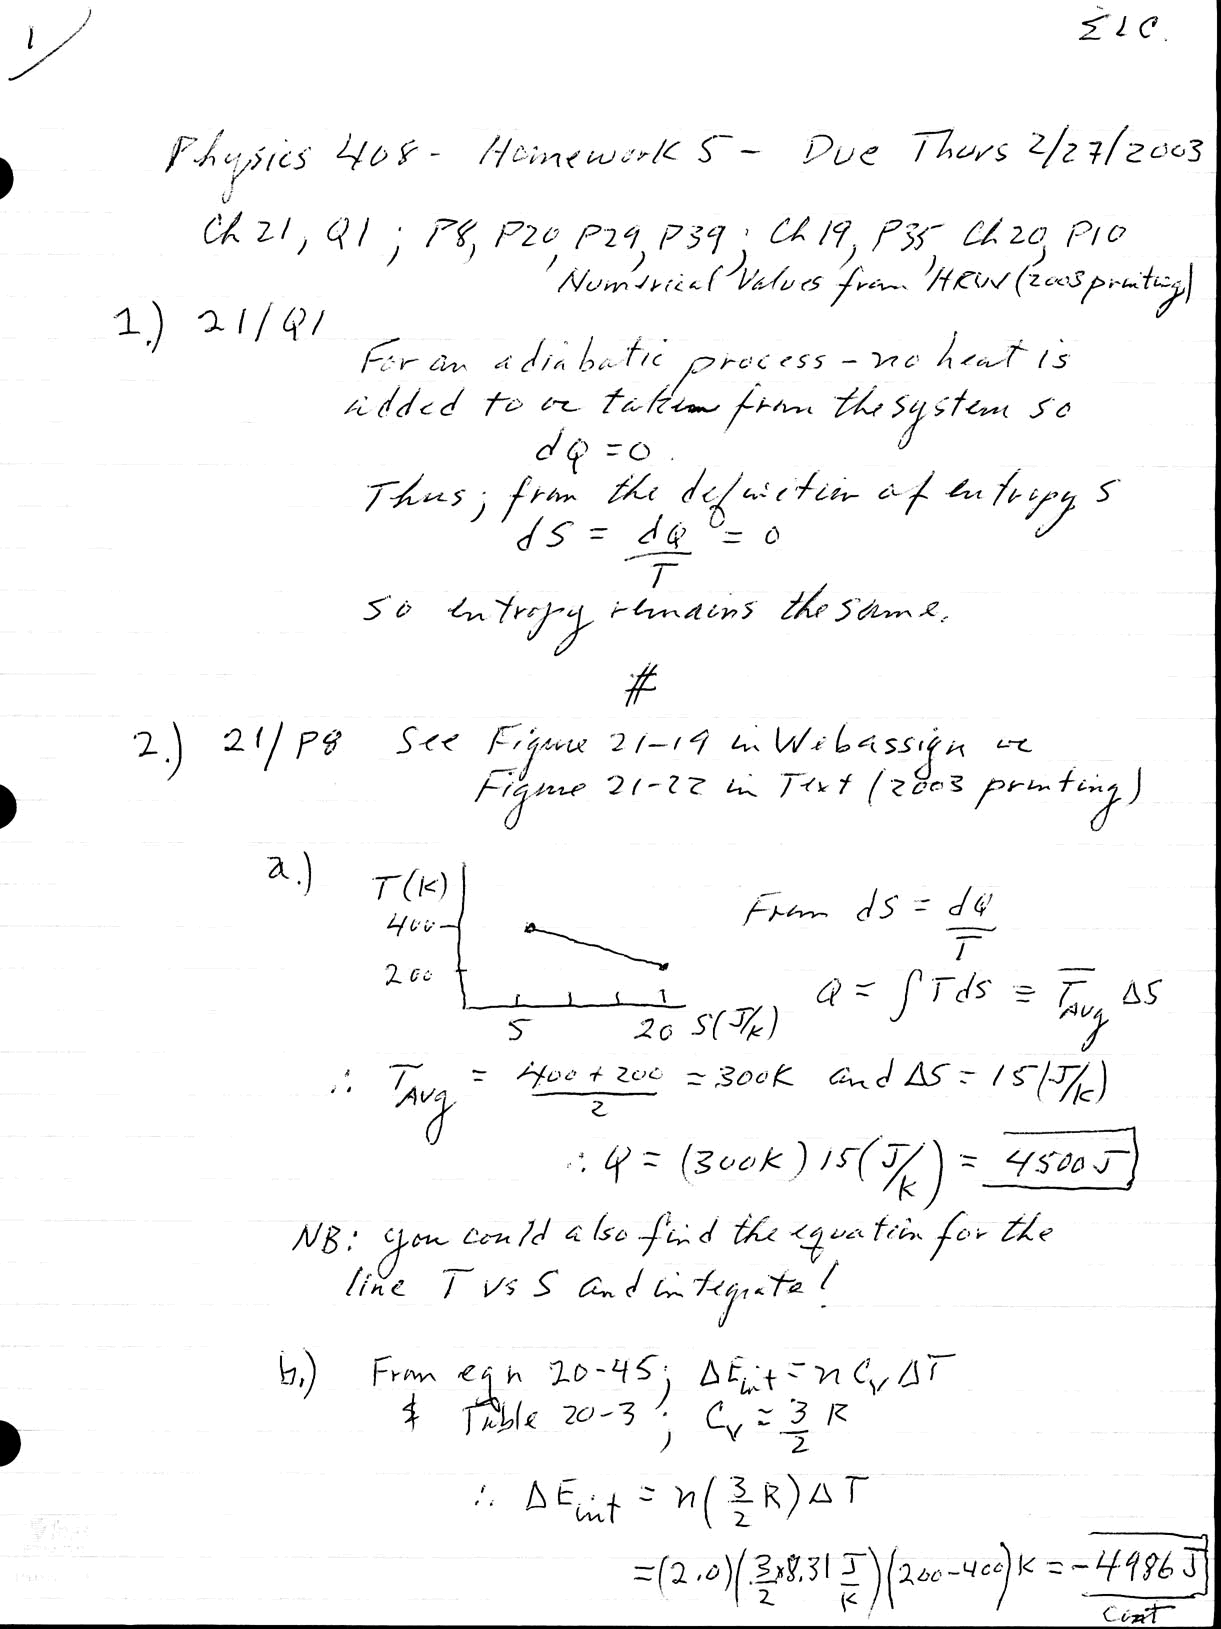 1
ELC.
Physics 408 - Homework 5 - Due Thurs 2/27/2003
Ch 21, Q1 ; P8, P20, P29, P39; Ch 19, P35, Ch 20, P10
Numerical Values from HRW (2003 printing)
1.) 21/Q1
For an adiabatic process - no heat is
added to or taken from the system so
dQ = 0.
Thus; from the definition of entropy S
dS = dQ/T = 0
so entropy remains the same.
#
2.) 21/P8 See Figure 21-19 in Webassign or
Figure 21-22 in Text (2003 printing)
a.) T(K)
400
200
5 20 S(J/K)
From dS = dQ/T
Q = ∫TdS ≡ T̄Avg ΔS
∴ T̄Avg = (400 + 200)/2 = 300K and ΔS = 15(J/K)
∴ Q = (300K) 15(J/K) = 4500J
NB: you could also find the equation for the
line T vs S and integrate!
b.) From eqn 20-45; ΔEint = n Cv ΔT
& Table 20-3; Cv = 3/2 R
∴ ΔEint = n(3/2 R)ΔT
=(2.0)(3/2 x 8.31 J/K)(200-400)K = -4986 J
Cont